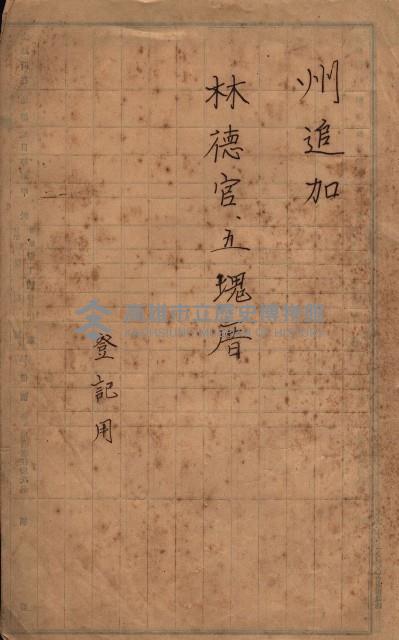 州追加
林德官、五塊厝
登記用
高雄市立歷史博物館
KAOHSIUNG MUSEUM OF HISTORY